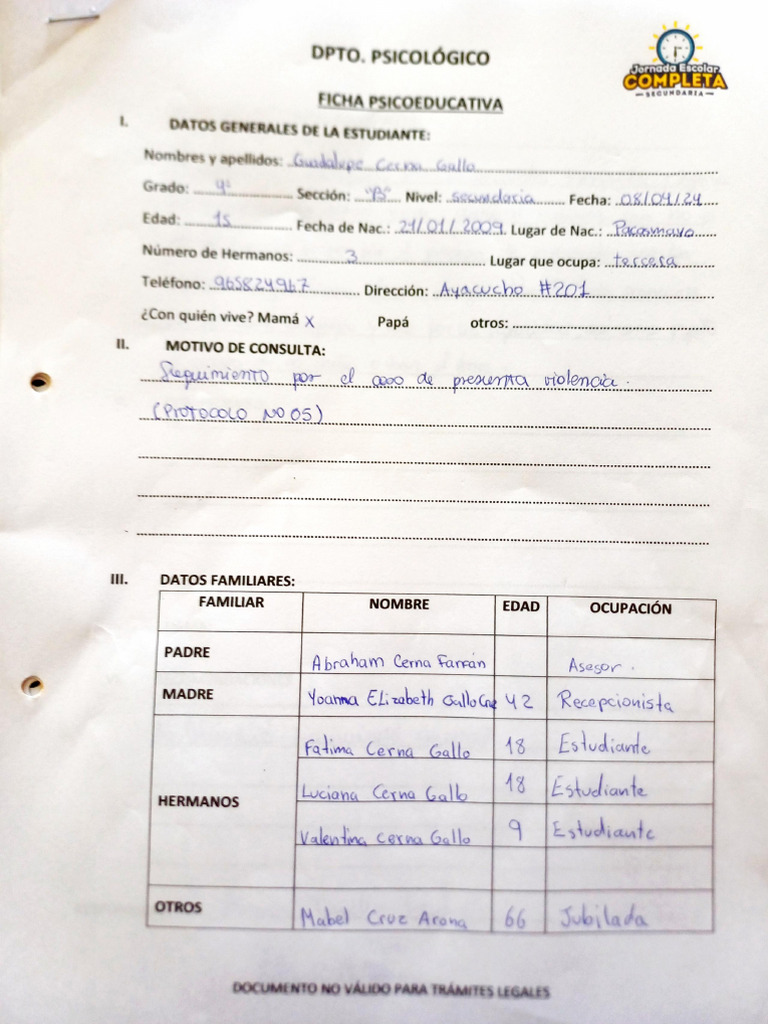 DPTO. PSICOLÓGICO
Jornada Escolar
COMPLETA
SECUNDARIA
FICHA PSICOEDUCATIVA
I. DATOS GENERALES DE LA ESTUDIANTE:
Nombres y apellidos: Guadalupe Cerna Gallo
Grado: 4° Sección: "B" Nivel: secundaria Fecha: 08/04/24
Edad: 15 Fecha de Nac.: 21/01/2009 Lugar de Nac.: Pacasmayo
Número de Hermanos: 3 Lugar que ocupa: tercera
Teléfono: 965824967 Dirección: Ayacucho #201
¿Con quién vive? Mamá X Papá otros:
II. MOTIVO DE CONSULTA:
Seguimiento por el caso de presunta violencia.
(PROTOCOLO NO 05)
III. DATOS FAMILIARES:
FAMILIAR NOMBRE EDAD OCUPACIÓN
PADRE Abraham Cerna Farfán Asesor.
MADRE Yoanna Elizabeth Gallo 42 Recepcionista
Fatima Cerna Gallo 18 Estudiante
Luciana Cerna Gallo 18 Estudiante
HERMANOS
Valentina Cerna Gallo 9 Estudiante
OTROS Mabel Cruz Arona 66 Jubilada
DOCUMENTO NO VÁLIDO PARA TRÁMITES LEGALES